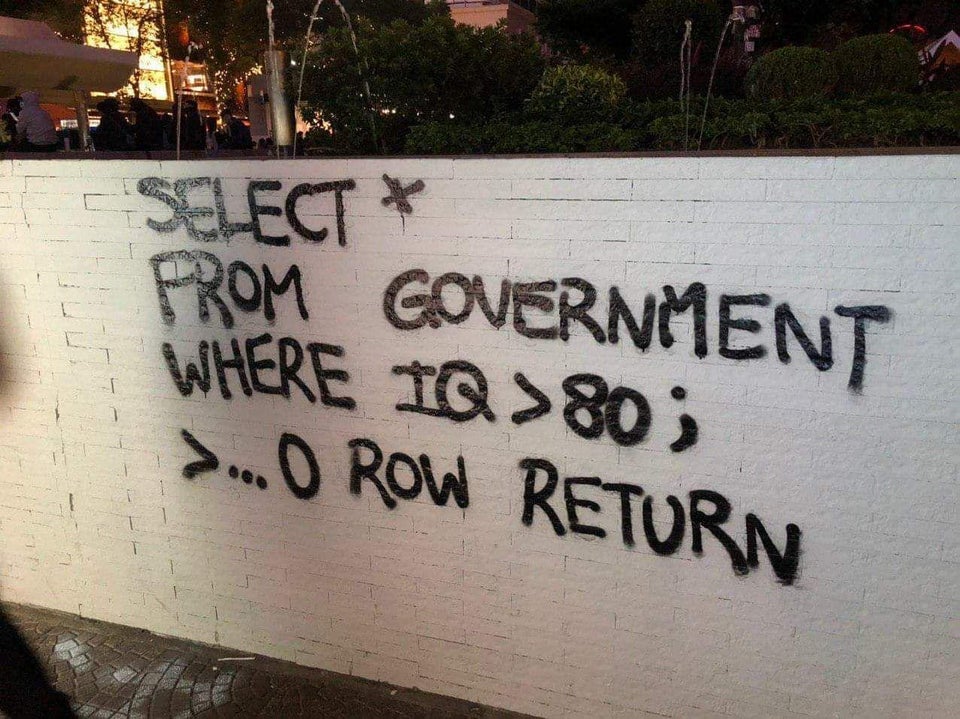 SELECT *
FROM GOVERNMENT
WHERE IQ >80;
>...0 ROW RETURN